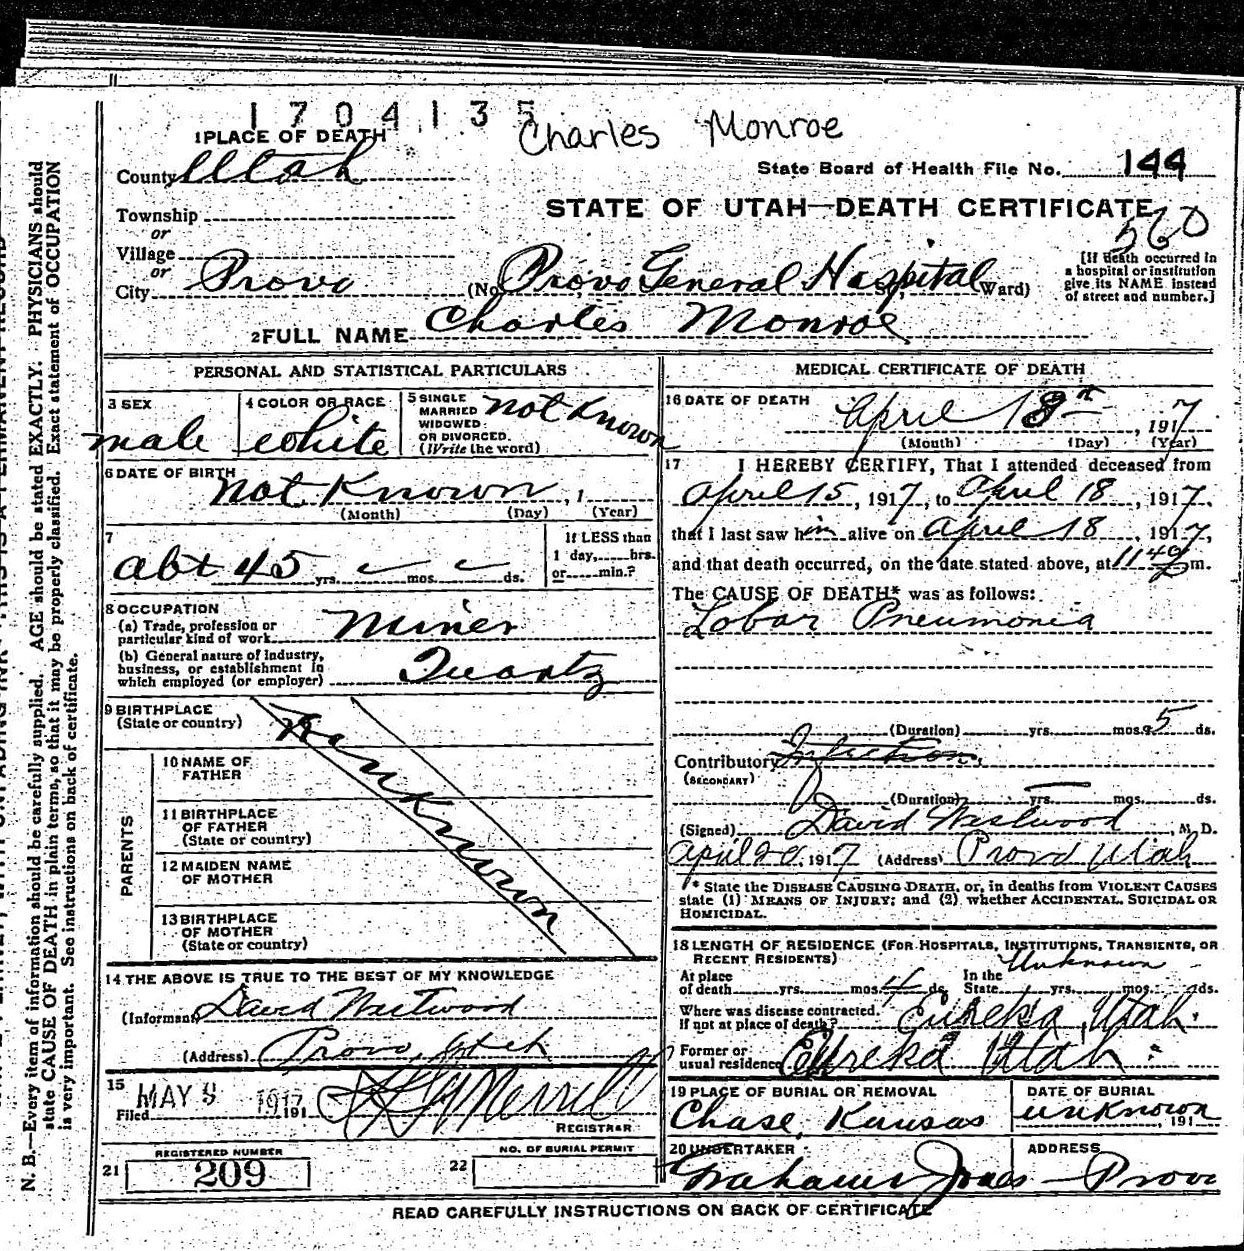 1704135
Charles Monroe
1 PLACE OF DEATH
County Utah
State Board of Health File No. 144
Township
or
STATE OF UTAH—DEATH CERTIFICATE
560
Village
or
City Provo
(No. Provo General Hospital Ward)
[If death occurred in
a hospital or institution
give its NAME instead
of street and number.]
2 FULL NAME Charles Monroe
PERSONAL AND STATISTICAL PARTICULARS
3 SEX
male
4 COLOR OR RACE
white
5 SINGLE
MARRIED
WIDOWED
OR DIVORCED.
(Write the word)
not Known
6 DATE OF BIRTH
not Known, 1
(Month) (Day) (Year)
7
abt 45 yrs. mos. ds.
If LESS than
1 day, hrs.
or min.?
8 OCCUPATION
(a) Trade, profession or
particular kind of work Miner
(b) General nature of Industry,
business, or establishment in
which employed (or employer) Quartz
9 BIRTHPLACE
(State or country)
Unknown
PARENTS
10 NAME OF
FATHER
11 BIRTHPLACE
OF FATHER
(State or country)
12 MAIDEN NAME
OF MOTHER
13 BIRTHPLACE
OF MOTHER
(State or country)
14 THE ABOVE IS TRUE TO THE BEST OF MY KNOWLEDGE
(Informant David Westwood
(Address) Provo, Utah
15
Filed MAY 9 1917 191
Merrill
REGISTRAR
21
REGISTERED NUMBER
209
22
NO. OF BURIAL PERMIT
MEDICAL CERTIFICATE OF DEATH
16 DATE OF DEATH
April 18th, 1917
(Month) (Day) (Year)
17 I HEREBY CERTIFY, That I attended deceased from
April 15, 1917, to April 18, 1917,
that I last saw him alive on April 18, 1917,
and that death occurred, on the date stated above, at 11 40 P m.
The CAUSE OF DEATH* was as follows:
Lobar Pneumonia
(Duration) yrs. mos. 5 ds.
Contributory Infection.
(SECONDARY)
(Duration) yrs. mos. ds.
(Signed) David Westwood, M. D.
April 20, 1917 (Address) Provo Utah
* State the DISEASE CAUSING DEATH, or, in deaths from VIOLENT CAUSES
state (1) MEANS OF INJURY; and (2) whether ACCIDENTAL, SUICIDAL OR
HOMICIDAL.
18 LENGTH OF RESIDENCE (FOR HOSPITALS, INSTITUTIONS, TRANSIENTS, OR
RECENT RESIDENTS)
At place
of death yrs. mos. 4 ds.
In the
State yrs. mos. ds.
Unknown
Where was disease contracted.
If not at place of death? Eureka, Utah.
Former or
usual residence Eureka Utah
19 PLACE OF BURIAL OR REMOVAL
Chase, Kansas
DATE OF BURIAL
unknown, 191
20 UNDERTAKER
Jones
ADDRESS
Provo
READ CAREFULLY INSTRUCTIONS ON BACK OF CERTIFICATE
N. B.—Every item of information should be carefully supplied. AGE should be stated EXACTLY. PHYSICIANS should
state CAUSE OF DEATH in plain terms, so that it may be properly classified. Exact statement of OCCUPATION
is very important. See instructions on back of certificate.